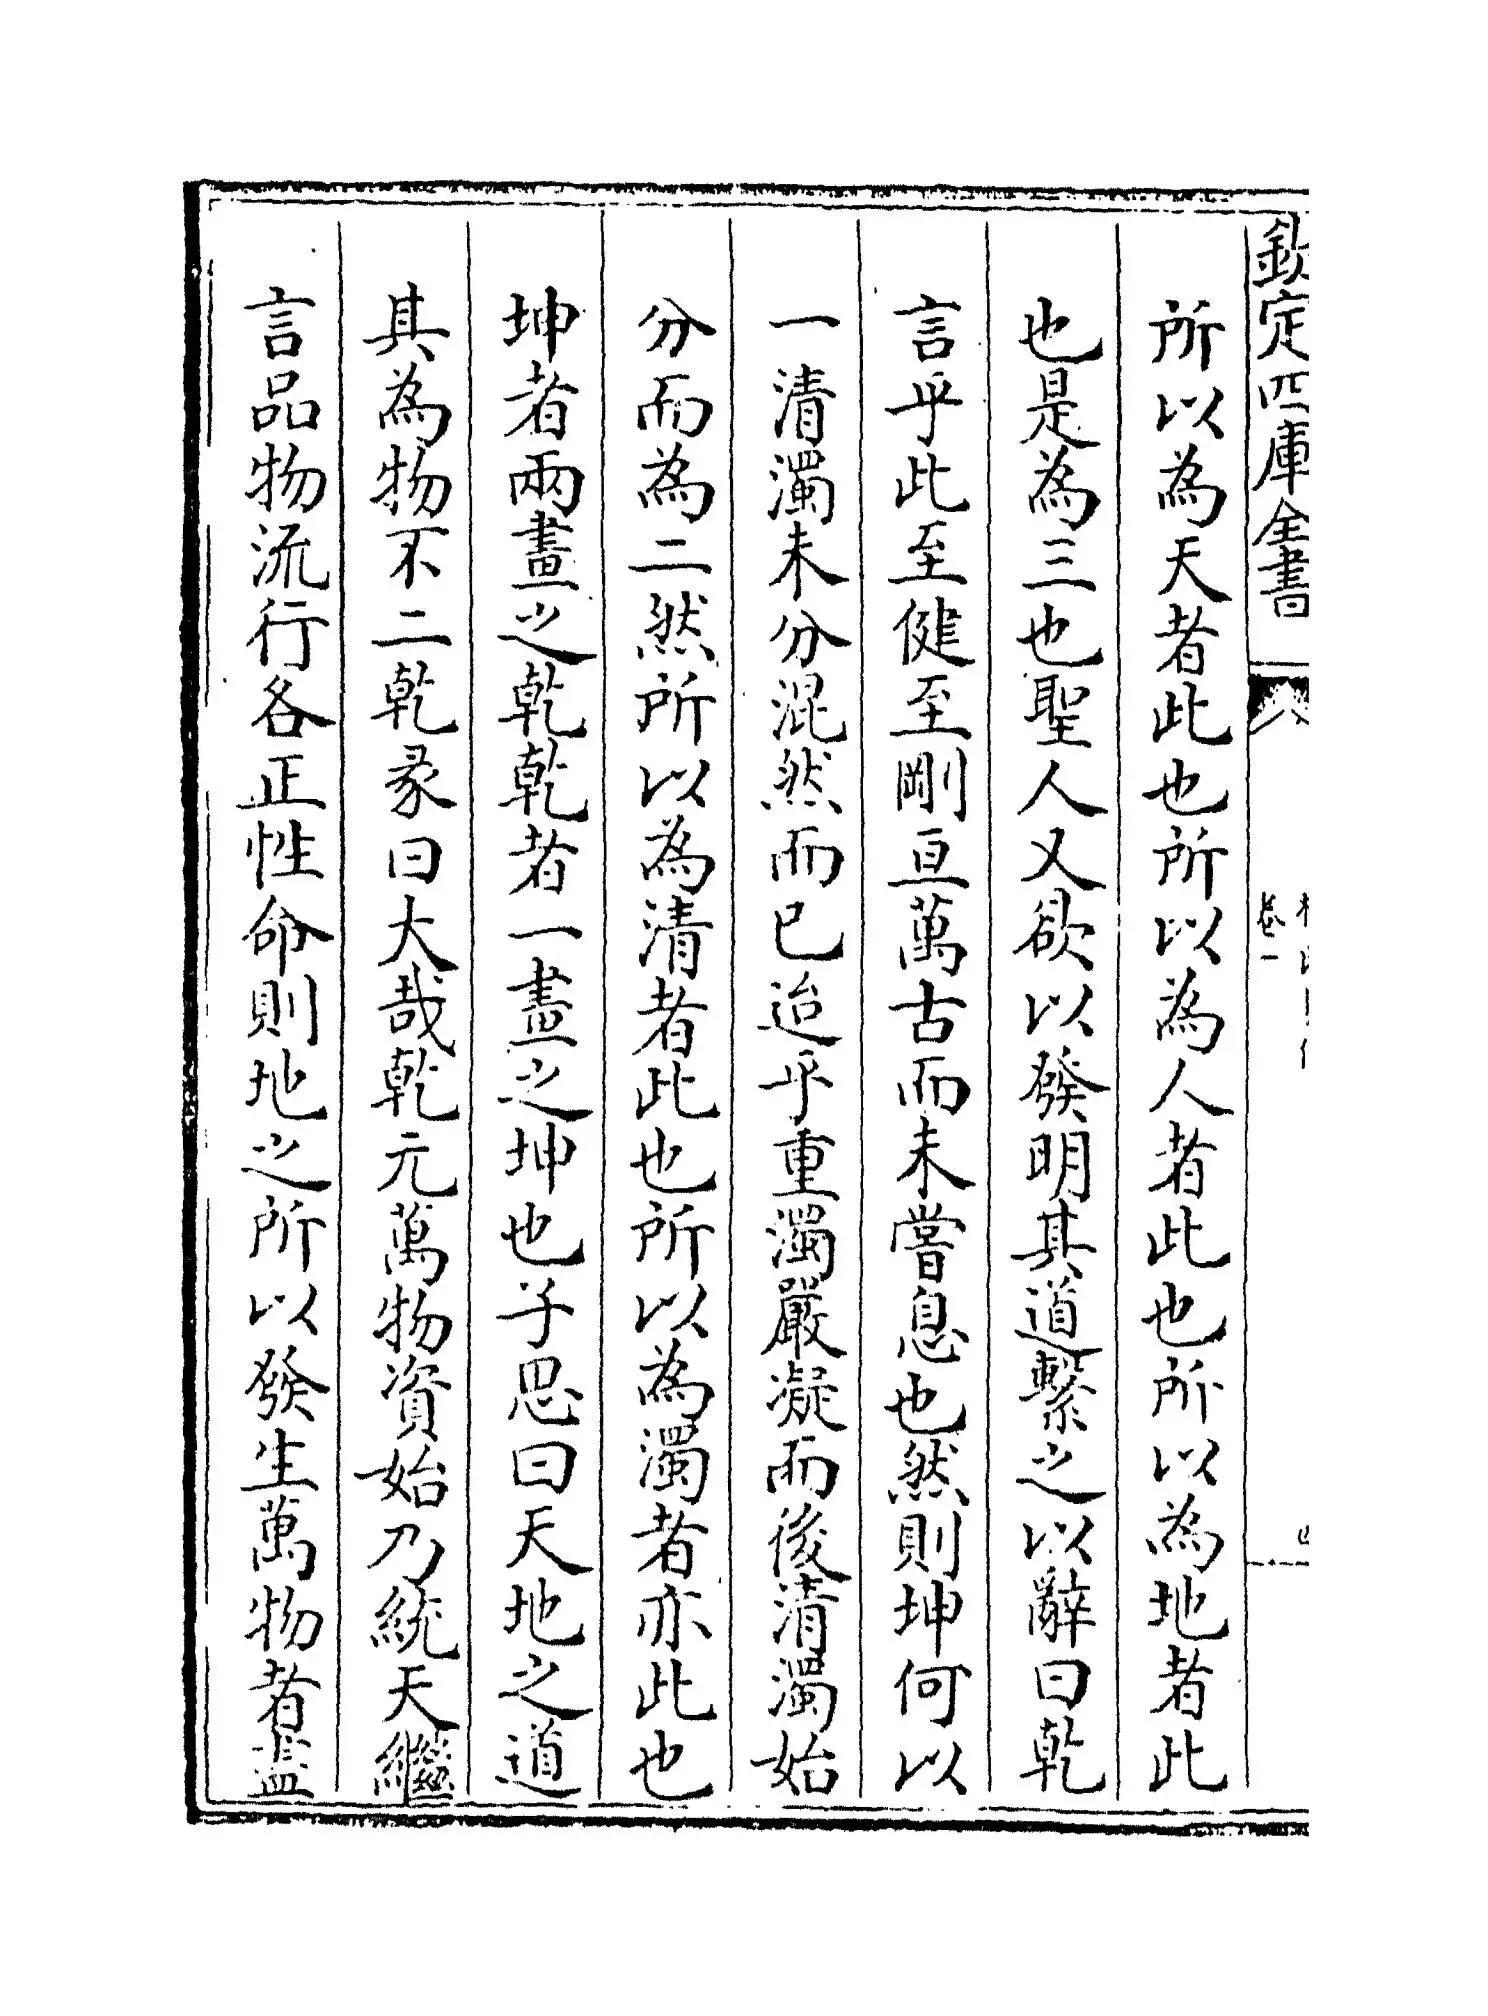 欽定四庫全書
卷一
所以為天者此也所以為人者此也所以為地者此
也是為三也聖人又欲以發明其道繫之以辭曰乾
言乎此至健至剛亘萬古而未嘗息也然則坤何以
一清濁未分混然而已迨乎重濁嚴凝而後清濁始
分而為二然所以為清者此也所以為濁者亦此也
坤者兩畫之乾乾者一畫之坤也子思曰天地之道
其為物不二乾彖曰大哉乾元萬物資始乃統天繼
言品物流行各正性命則地之所以發生萬物者盡